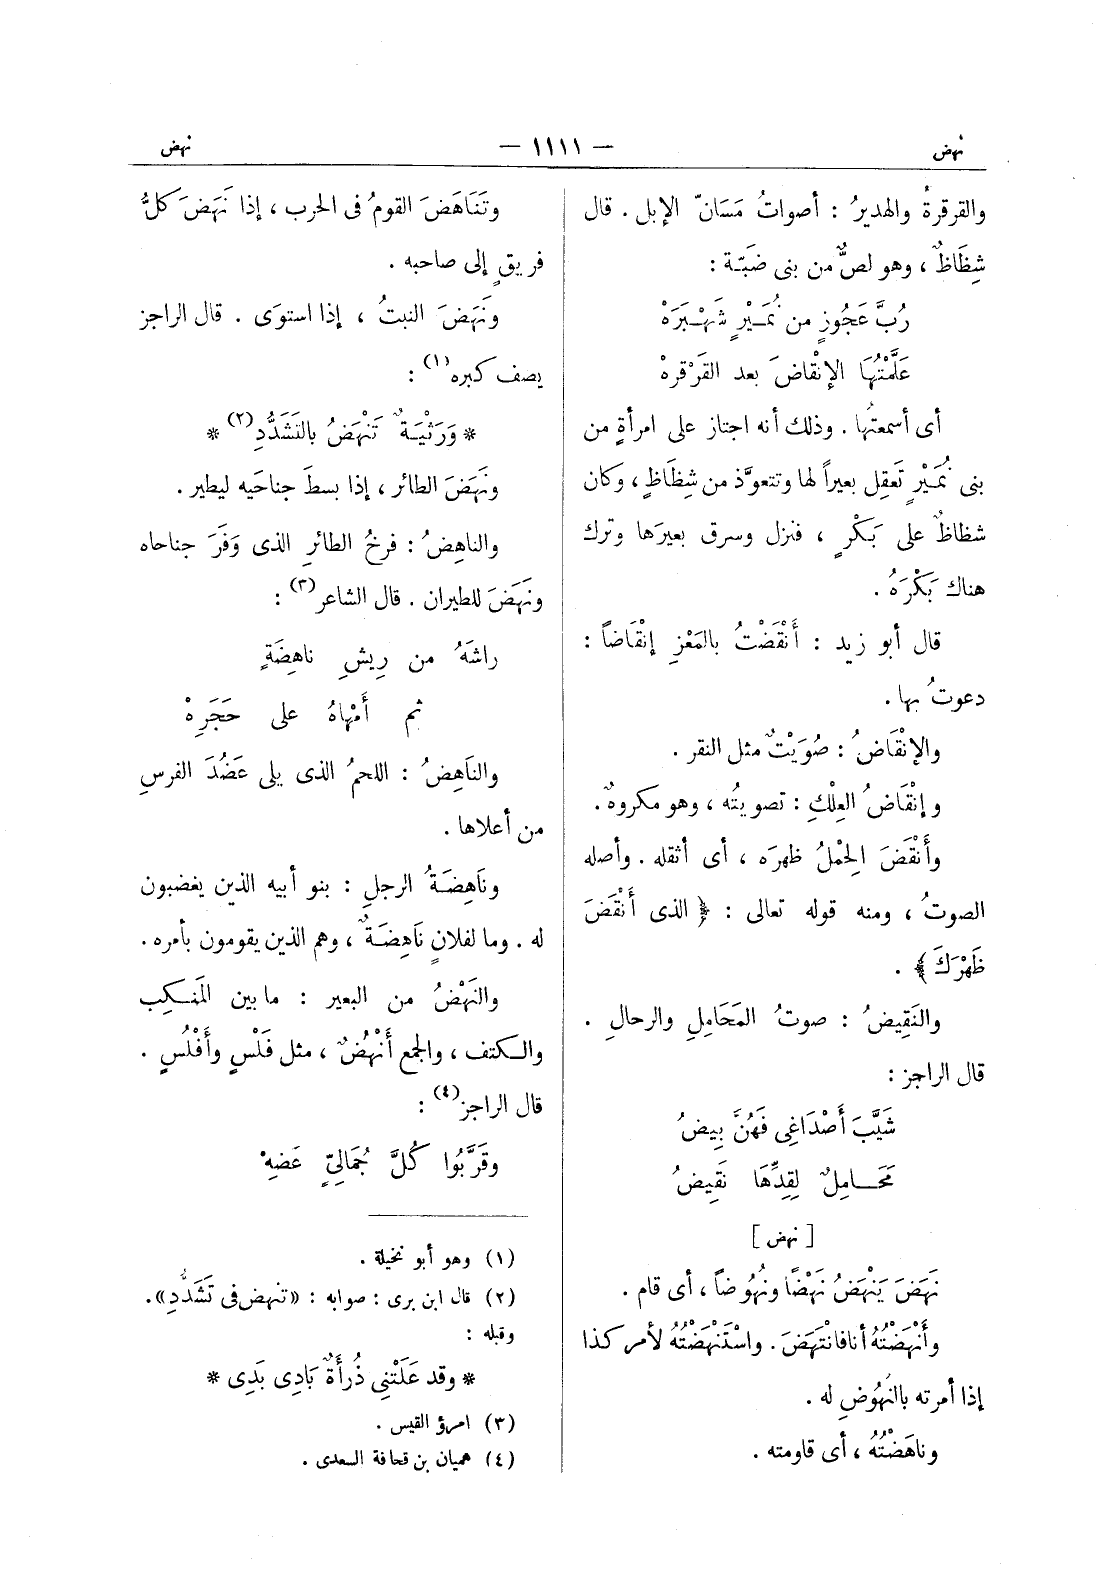 نهض
— ١١١١ —
نهض
والقرقرةُ والهديرُ : أصواتُ مَسَانّ الإبل . قال
شِظَاظٌ ، وهو لصٌّ من بنى ضَبّة :
رُبَّ عَجُوزٍ من نُمَيْرٍ شَهْبَرَهْ
عَلَّمْتُهَا الإنْقاضَ بعد القَرْقرهْ
أى أسمعتُها . وذلك أنه اجتاز على امرأةٍ من
بنى نُمَيْرٍ تَعقِل بعيراً لها وتتعوّذ من شِظَاظٍ ، وكان
شظاظٌ على بَكْرٍ ، فنزل وسرق بعيرَها وترك
هناك بَكْرَهُ .
قال أبو زيد : أَنْقَضْتُ بالمَعْزِ إنْقَاضاً :
دعوتُ بها .
والإنْقَاضُ : صُوَيْتٌ مثل النقر .
وإنْقَاضُ العِلْكِ : تصويتُه ، وهو مكروهٌ .
وأَنْقَضَ الحِمْلُ ظهرَه ، أى أثقله . وأصله
الصوتُ ، ومنه قوله تعالى : ﴿ الذى أَنْقَضَ
ظَهْرَكَ ﴾ .
والنَقِيضُ : صوتُ المَحَامِلِ والرحالِ .
قال الراجز :
شَيَّبَ أَصْدَاغِى فَهُنَّ بِيضُ
مَحَامِلٌ لِقِدِّهَا نَقِيضُ
[ نهض ]
نَهَضَ يَنْهَضُ نَهْضًا ونُهُوضاً ، أى قام .
وأَنْهَضْتُهُ أنا فانْتَهَضَ . واسْتَنْهَضْتُهُ لأمر كذا
إذا أمرته بالنُهُوضِ له .
وناهَضْتُهُ ، أى قاومته .
وتَنَاهَضَ القومُ فى الحرب ، إذا نَهَضَ كلُّ
فريقٍ إلى صاحبه .
ونَهَضَ النبتُ ، إذا استوَى . قال الراجز
يصف كبره (١) :
* وَرَثْيَةٌ تَنْهَضُ بالتَشَدُّدِ (٢) *
ونَهَضَ الطائر ، إذا بسطَ جناحَيه ليطير .
والناهِضُ : فرخُ الطائرِ الذى وَفَرَ جناحاه
ونَهَضَ للطيران . قال الشاعر (٣) :
راشَهُ من رِيشِ ناهِضَةٍ
ثم أَمْهاهُ على حَجَرِهْ
والنَاهِضُ : اللحمُ الذى يلى عَضُدَ الفرسِ
من أعلاها .
ونَاهِضَةُ الرجلِ : بنو أبيه الذين يغضبون
له . وما لفلانٍ نَاهِضَةٌ ، وهم الذين يقومون بأمره .
والنَهْضُ من البعير : ما بين المَنكِب
والكتف ، والجمع أَنْهُضٌ ، مثل فَلْسٍ وأَفْلُسٍ .
قال الراجز (٤) :
وقَرَّبُوا كُلَّ جُمَالِىٍّ عَضِهْ
(١) وهو أبو نخيلة .
(٢) قال ابن برى : صوابه : «تنهض فى تَشَدُّدِ» .
وقبله :
* وقد عَلَتْنِى ذُرأَةٌ بَادِى بَدِى *
(٣) امرؤ القيس .
(٤) هميان بن قحافة السعدى .